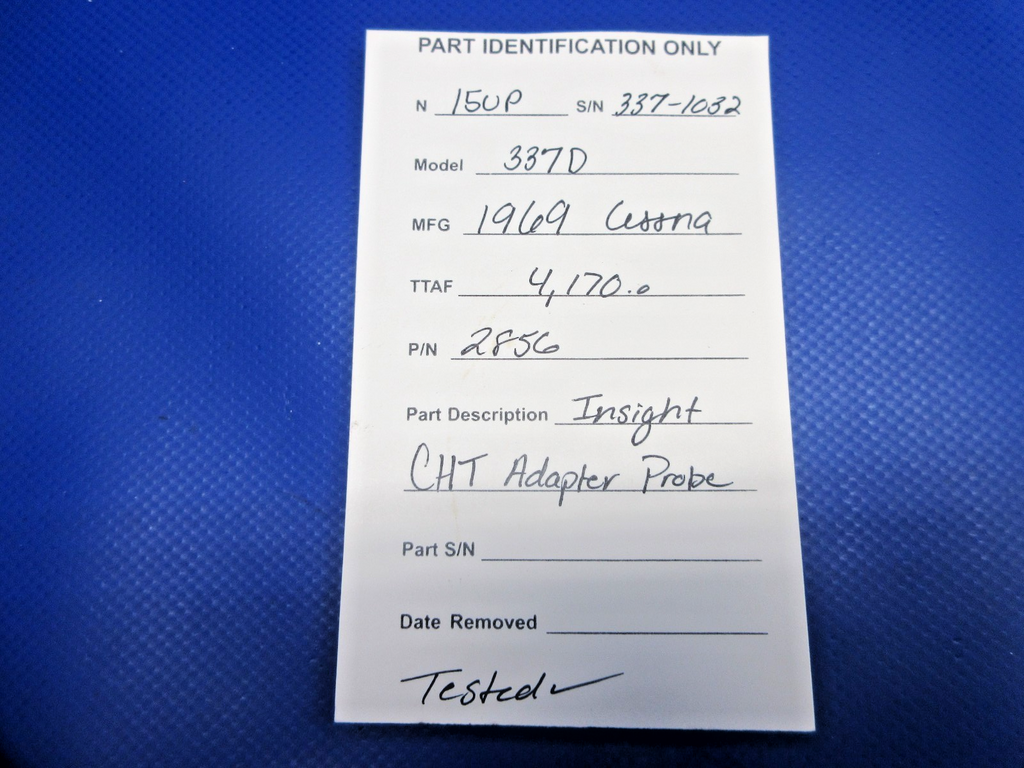 PART IDENTIFICATION ONLY
N 15UP S/N 337-1032
Model 337D
MFG 1969 Cessna
TTAF 4,170.0
P/N 2856
Part Description Insight
CHT Adapter Probe
Part S/N
Date Removed
Tested ✓